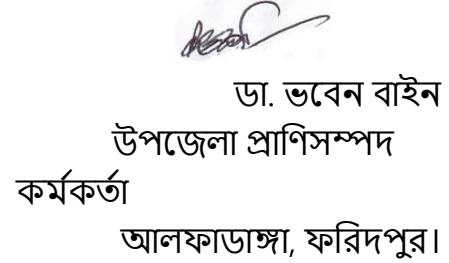 ডা. ভবেন বাইন
উপজেলা প্রাণিসম্পদ
কর্মকর্তা
আলফাডাঙ্গা, ফরিদপুর।